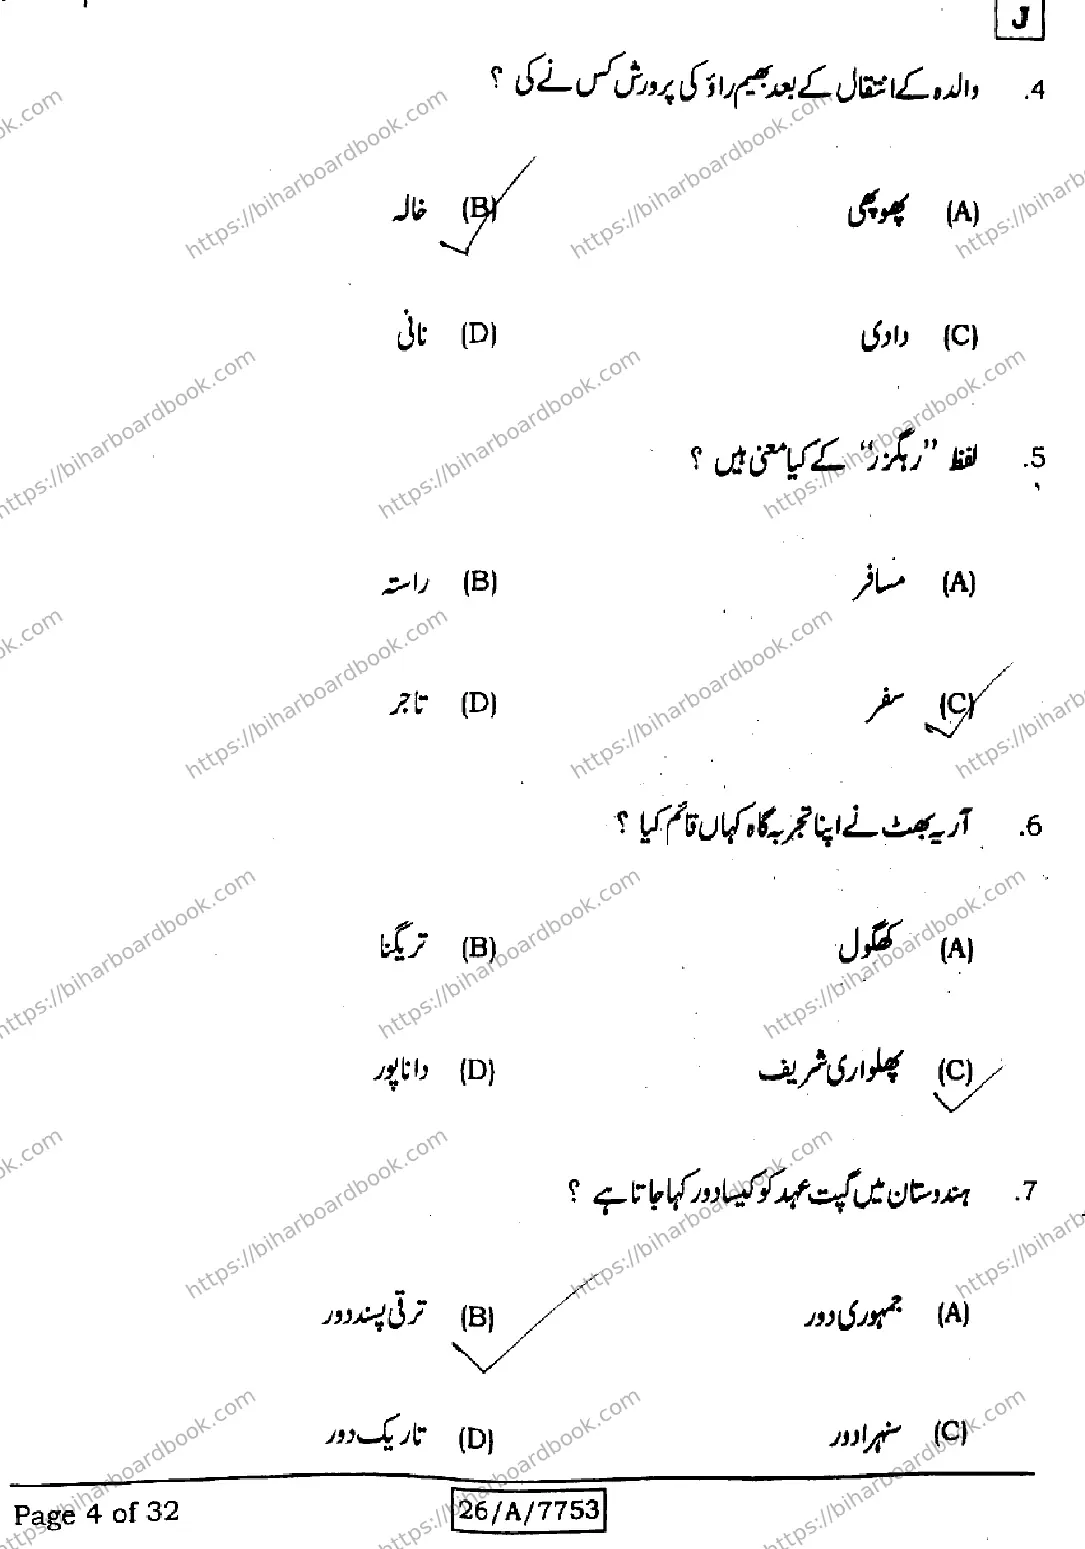 J
4. والدہ کے انتقال کے بعد بھیم راؤ کی پرورش کس نے کی ؟
(A) پھوپھی (B) خالہ
(C) دادی (D) نانی
5. لفظ “رہگزر” کے کیا معنی ہیں ؟
(A) مسافر (B) راستہ
(C) سفر (D) تاجر
6. آریہ بھٹ نے اپنا تجربہ گاہ کہاں قائم کیا ؟
(A) کھگول (B) تریگنا
(C) پھلواری شریف (D) داناپور
7. ہندوستان میں گپت عہد کو کیسا دور کہا جاتا ہے ؟
(A) جمہوری دور (B) ترقی پسند دور
(C) سنہرا دور (D) تاریک دور
Page 4 of 32 26/A/7753
https://biharboardbook.com